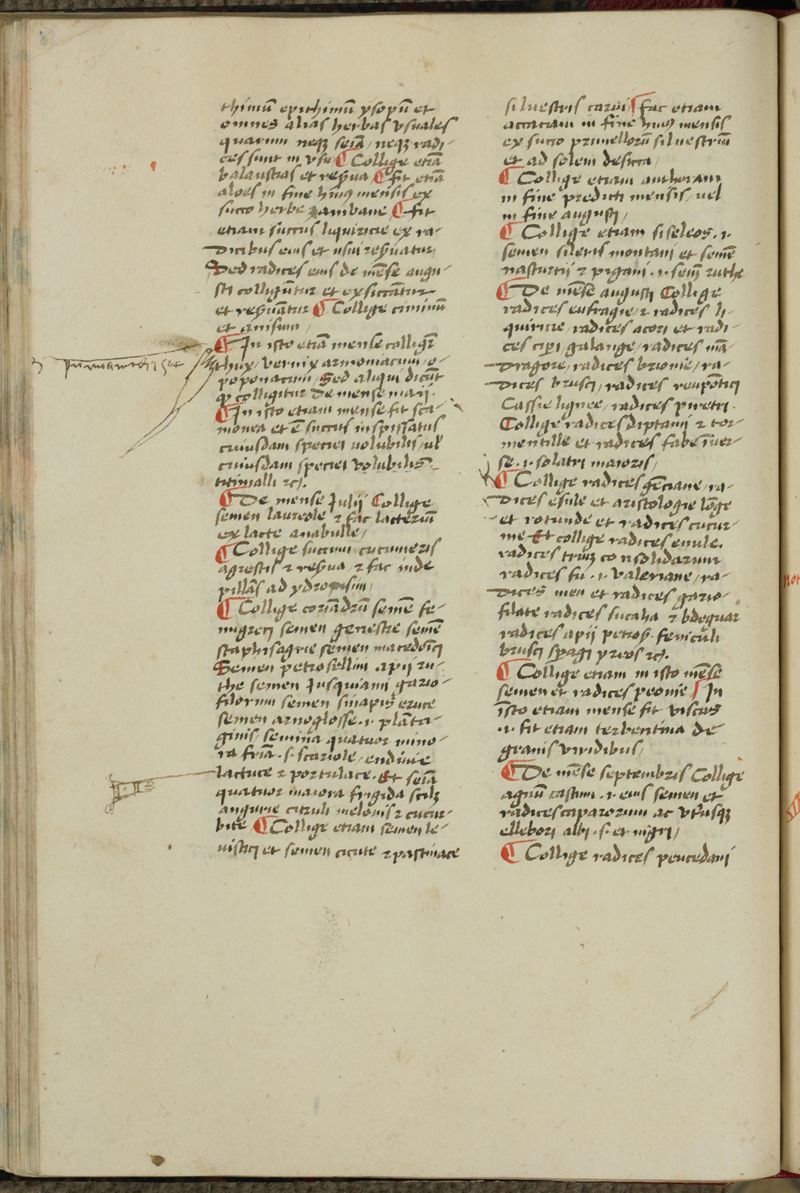 thimū epithimū ysopū et
omnes alias herbas vsuales
quarum neqȝ seīa / neqȝ radi-
ces sunt in vsu ¶ Collige etiā
balaustias et reṣua ¶ fit etiā
aloes in fine huiꝰ mensis ex
succo herbe zambane ¶ fit
etiam succus liquiricie ex ra-
dicibus eius et usui reṣuatur
Sed radices eius de mēse augu-
sti colligūtur et exsiccātur
et reṣuātur ¶ Collige ciminū
et anisum /
¶ In isto etiā mense colligr̄
thus / vernix armoniacum / o-
poponacum / Sed aliqui dicūt
ꝙ colligitur de mense maij
¶ In isto etiam mense fit sca-
monea et ē succus inspissatus
cuiusdam speciei uolubilis / ul̄
cuiusdam speciei volubilis
titimalli ⁊c̄.
¶ De mense Julij Collige
semen laureole ⁊ fac lacteriū
ex lacte anabulle /
¶ Collige succum cucumeris
agrestis ⁊ reṣua ⁊ fac inde
pillās ad ydropisim /
¶ Collige coriādrū semē fe-
nugreci semen genestre semē
staphisagrie semen macedōici
Semen petrosellini apij ru-
the semen Jusquiami gario-
filorum semen sinapis eruce
semen arnoglosse .i. plāta-
ginis semina quatuor mino-
ra friā .s. scariole / endiuie
lactuce ⁊ portulace. Et seīa
quatuor maiora frigida scilȝ
angurie citruli melonis ⁊ cucur-
bite ¶ Collige etiam semen le-
uistici et semen cicute ⁊ pastinace
siluestris carui ¶ fac etiam
accaciam in fine huiꝰ mensis
ex succo prunellorū siluestriū
et ad solem desicca /
¶ Collige etiam antheram
in fine predicti mensis / uel
in fine augusti /
¶ Collige etiam siseleos .i.
semen sileris montani et semē
nasturtij ⁊ pigani .i. semī ruthe
¶ De mēse augusti Collige
radices eufragie / ⁊ radices li-
quiricie / radices acori et radi-
ces cipi galange / radices mā-
dragore / radices brionie / ra-
dices brusci / radices reupōtici
Cassie lignee / radices piretri.
Collige radices diptami ⁊ tor-
mentille et radices fabe īuer-
se .i. solatri maioris /
¶ Collige radices gēciane ra-
dices esule et aristologie lōge
et rotunde et radices cucur-
me Et collige radices enule.
radices triūȝ consolidarum
radices fu .i. valeriane / ra-
dices meu et radices gario-
filate radices sucaha ⁊ bdeguar
radices apij petros. feniculi
brusci spagi yreos ⁊c̄.
¶ Collige etiam in isto mēse
semen et radices peonie / In
isto etiam mense fit viscus
.i. fit etiam terbentina de
granis viridibus /
¶ De mēse septembris Collige
agnū castum .i. eius semen et
radices caparorum ac vtriusqȝ
ellebori albi .s. et nigri /
¶ Collige radices peucedani